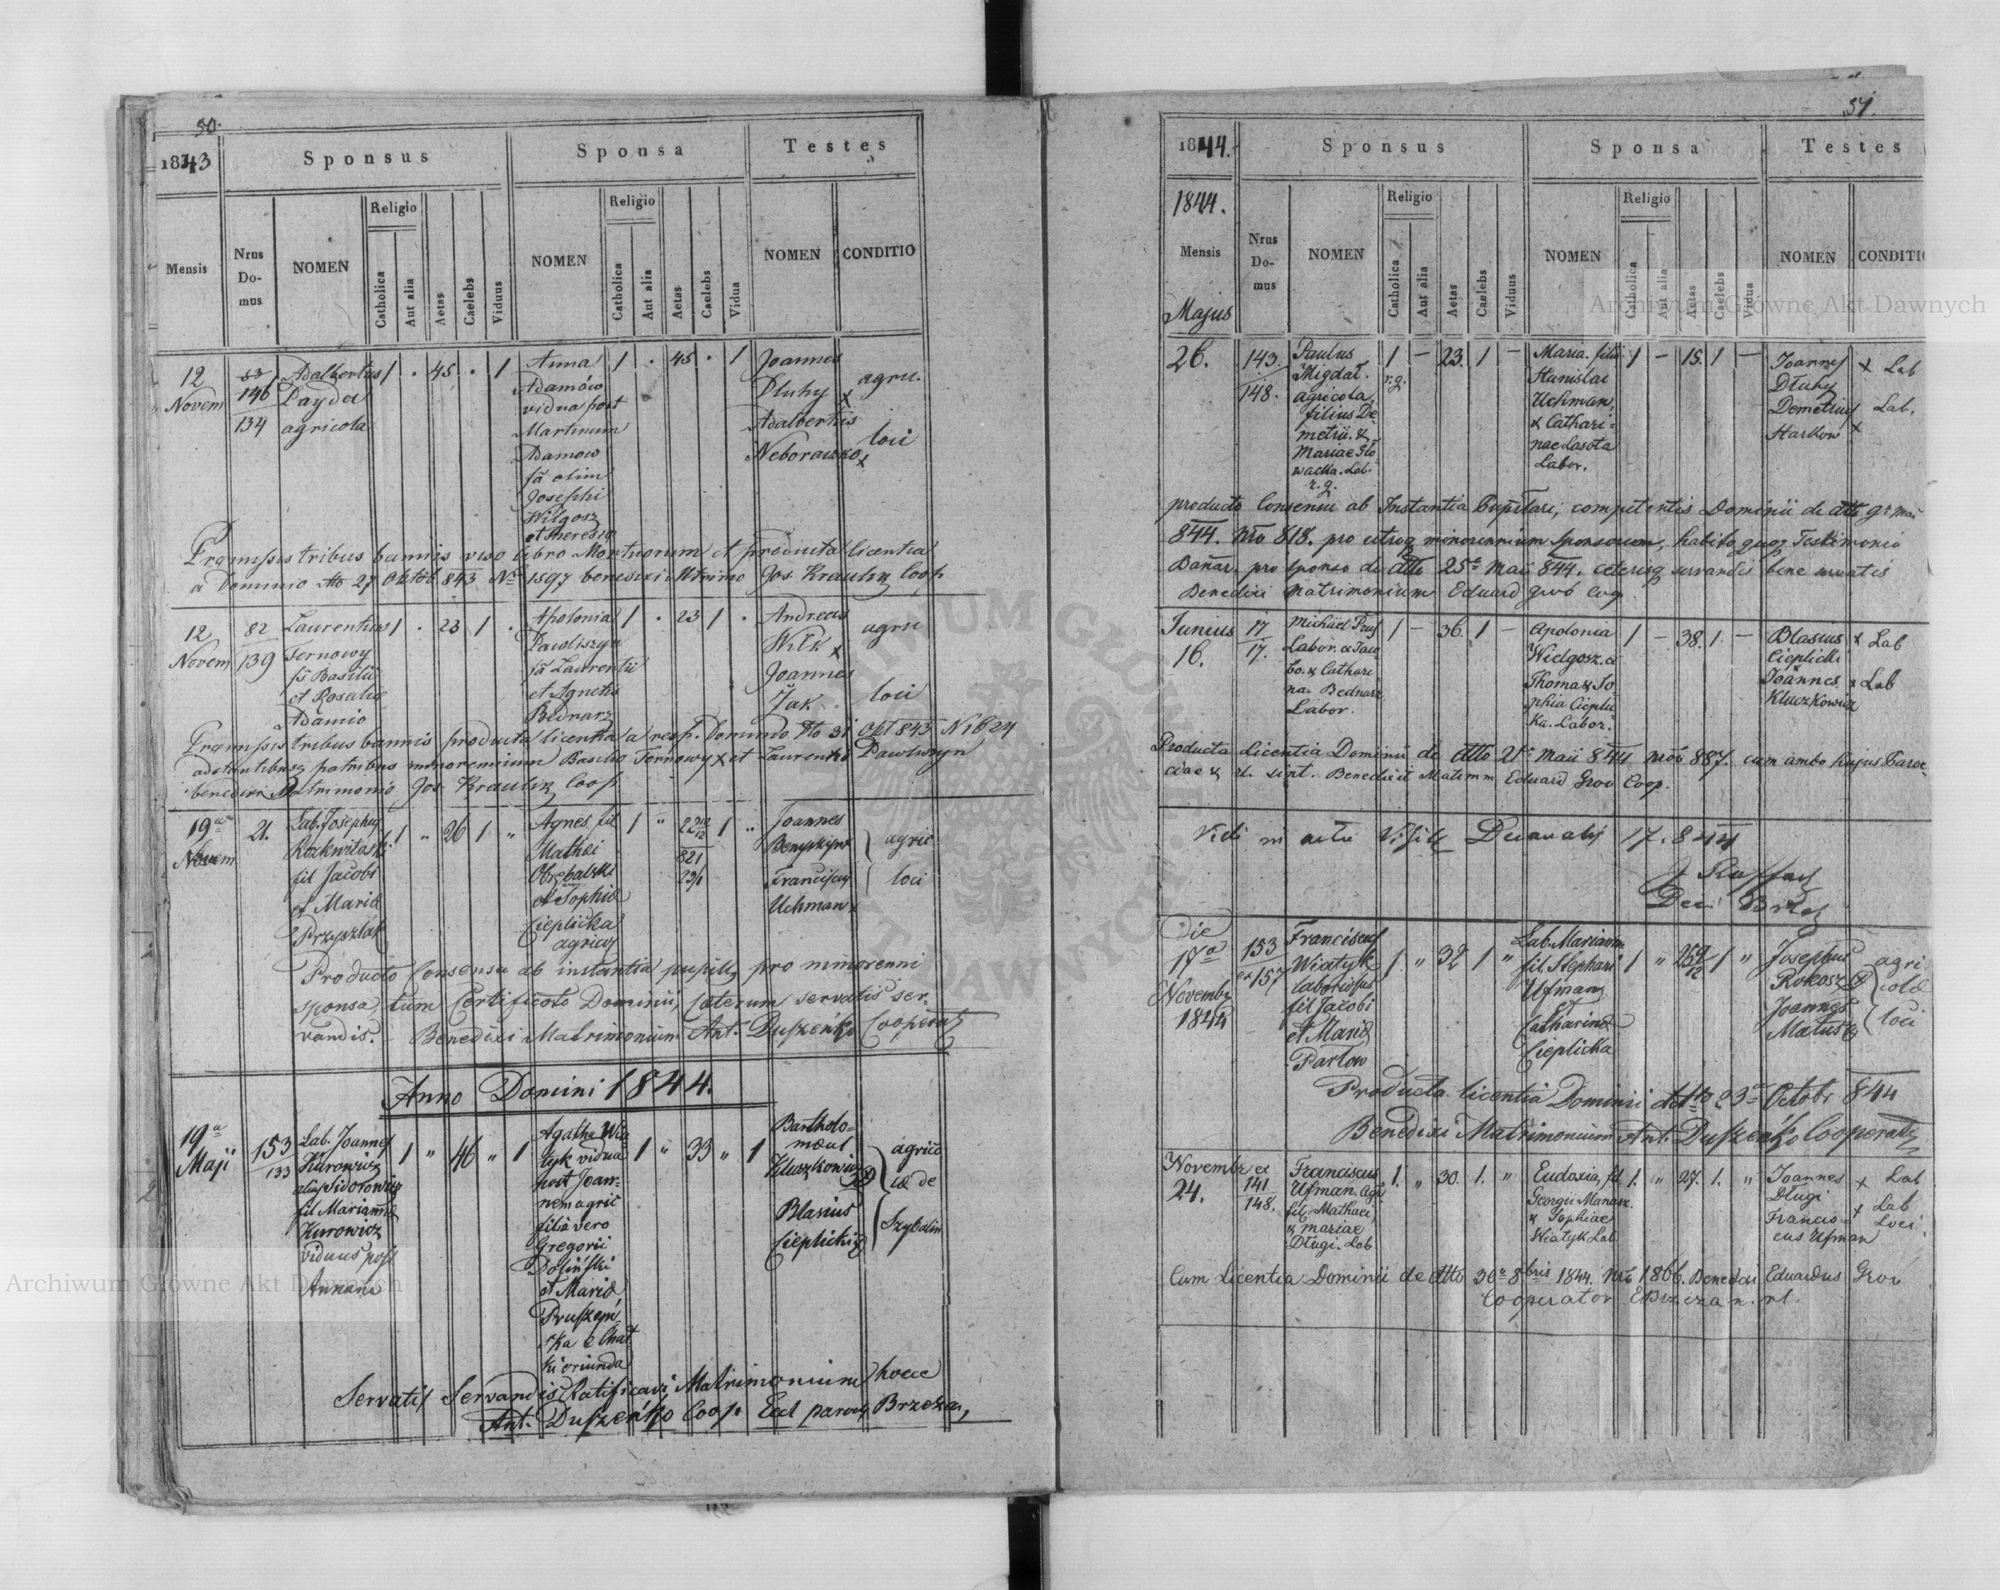 50.
1843
Sponsus
Sponsa
Testes
Mensis
Nrus Do- mus
NOMEN
Religio
Catholica
Aut alia
Aetas
Caelebs
Viduus
NOMEN
Religio
Catholica
Aut alia
Aetas
Caelebs
Vidua
NOMEN
CONDITIO
12
Novem
53
146
134
Adalbertus
Payda
agricola
1 . 45 . 1
Anna
Adamów
vidua post
Martinum
Adamow
fa olim
Josephi
Wilgosz
et Theresia
1 . 45 . 1
Joannes
Dluhy x
Adalbertus
Neborawko x
agri.
loci
Praemissis tribus bannis viso libro Mortuorum et producta licentia
a Dominio dto 27 Oktob 843 No 1897 benedixi Mtrimo Jos Kraulik Coop
12
Novem
82
139
Laurentius
Ternowy
fs Basilii
et Rosalia
Adamio
1 . 23 1 .
Apolonia
Pawliszyn
fa Laurentii
et Agnetis
Bednarz
1 . 23 1 .
Andreas
Wilk x
Joannes
Żak
agri
loci
Praemissis tribus bannis producta licentia a resp. Dominio dto 31 Okt 843 N 1624
adstantibus patribus minorennium Basilio Ternowy x et Laurentio Pawliszyn
benedixi Matrimonio Jos Kraulik Coop
19a
Novem
21.
Lab. Josephus
Rozkwitaski
fil Jacobi
et Maria
Przyszlak
1 " 26 1 "
Agnes fil
Mathei
Obrębalski
et Sophia
Cieplicka
agricol
1 "
821
1 "
Joannes
Franciscus
Uchman x
agric
loci
Producto Consensu ab instantia pupill, pro minorenni
sponsa, tum Certificato Dominii, Caeterum servatis ser-
vandis. Benedixi Matrimonium Ant. Duszeńko Cooperat
Anno Domini 1844.
19a
Maji
153
133
Lab. Joannes
Kurowicz
alias Sidorowicz
fil Marianna
Kurowicz
viduus post
Annam
1 " 46 " 1
Agatha Wia
tyk vidua
post Joan-
nem agric
filia vero
Gregorii
Dosiński
et Maria
Pruszyń
ska e Chat
ki oriunda
1 " 33 " 1
Bartholo-
maeus
Kluszkowicz
Blasius
Cieplicki
agrico
lae de
Szybalin
Servatis Servandis Ratificavi Matrimonium hocce
Ant. Duszeńko Coop. Eccl paroch Brzeżan,
51.
1844.
Sponsus
Sponsa
Testes
1844.
Mensis
Majus
Nrus Do- mus
NOMEN
Religio
Catholica
Aut alia
Aetas
Caelebs
Viduus
NOMEN
Religio
Catholica
Aut alia
Aetas
Caelebs
Vidua
NOMEN
CONDITI
26.
143.
148.
Paulus
Migdał.
agricola,
filius De
metrii. &
Mariae Gło
wacka. Lab.
r. g.
1 – 23. 1 –
r. g.
Maria. filia
Stanislai
Uchman,
& Cathari-
nae Lasota
Labor.
1 – 15. 1 –
Joannes
Dłuhy
Demetrius
Harkow
x Lab
x Lab.
producto Consensu ab Instantia Pupillari, competentis Dominii de dtto 9a Maii
844. Nro 818. pro utroq minorennium Sponsorum, habito quoq Testimonio
Bannor. pro sponso de dtto 25ta Maii 844. ceterisq servandis bene servatis
Benedixi Matrimonium Eduard Groó Coop
Junius
16.
17
17.
Michael Prus
Labor. ex Jaco
bo. & Cathari
na. Bednarz
Labor.
1 – 36. 1 –
Apolonia
Wielgosz. ex
Thoma & So
phia Cieplic
ka. Labor.
1 – 38. 1. –
Blasius
Cieplicki
Joannes
Kluczkowicz
x Lab
x Lab
Producta Licentia Dominii de dtto 21a Maii 844 Nro 887. cum ambo hujus Paroe-
ciae & rl. sint. Benedixit Matrimm Eduard Groó Coop.
Vidi in actu Visit Decanalis 17. 8 844
Deca Brzez
Die
17a
Novembr
1844
153
et 157
Franciscus
Wiatyk
laboriosus
fil Jacobi
et Maria
Partow
1. " 32 1 "
Lab. Mariann
fil. Stephani
Ufman
et
Catharina
Cieplicka
1 " 25 9/12 1 "
Josephus
Rokosz
Joannes
Matus
agri
colae
loci
Producta licentia Dominii ddtto 23a Octobr 844
Benedixi Matrimonium Ant. Duszeńko Cooperat
Novembr
24.
ex
141
148.
Franciscus
Ufman. Agr
fil. Mathaei,
& Mariae
Długi. Lab
1. " 30. 1. "
Eudoxia, fil.
Georgii Manasz.
& Sophiae
Wiatyk Lab
1. " 27. 1. "
Joannes
Długi
Francis-
cus Ufman
x Lab
x Lab
Loci.
Cum Licentia Dominii de dtto 30a 8bris 1844. Nro 1866. Benedixi Eduardus Groó
Cooperator Brzezan. rl.
Archiwum Główne Akt Dawnych
Archiwum Główne Akt Dawnych